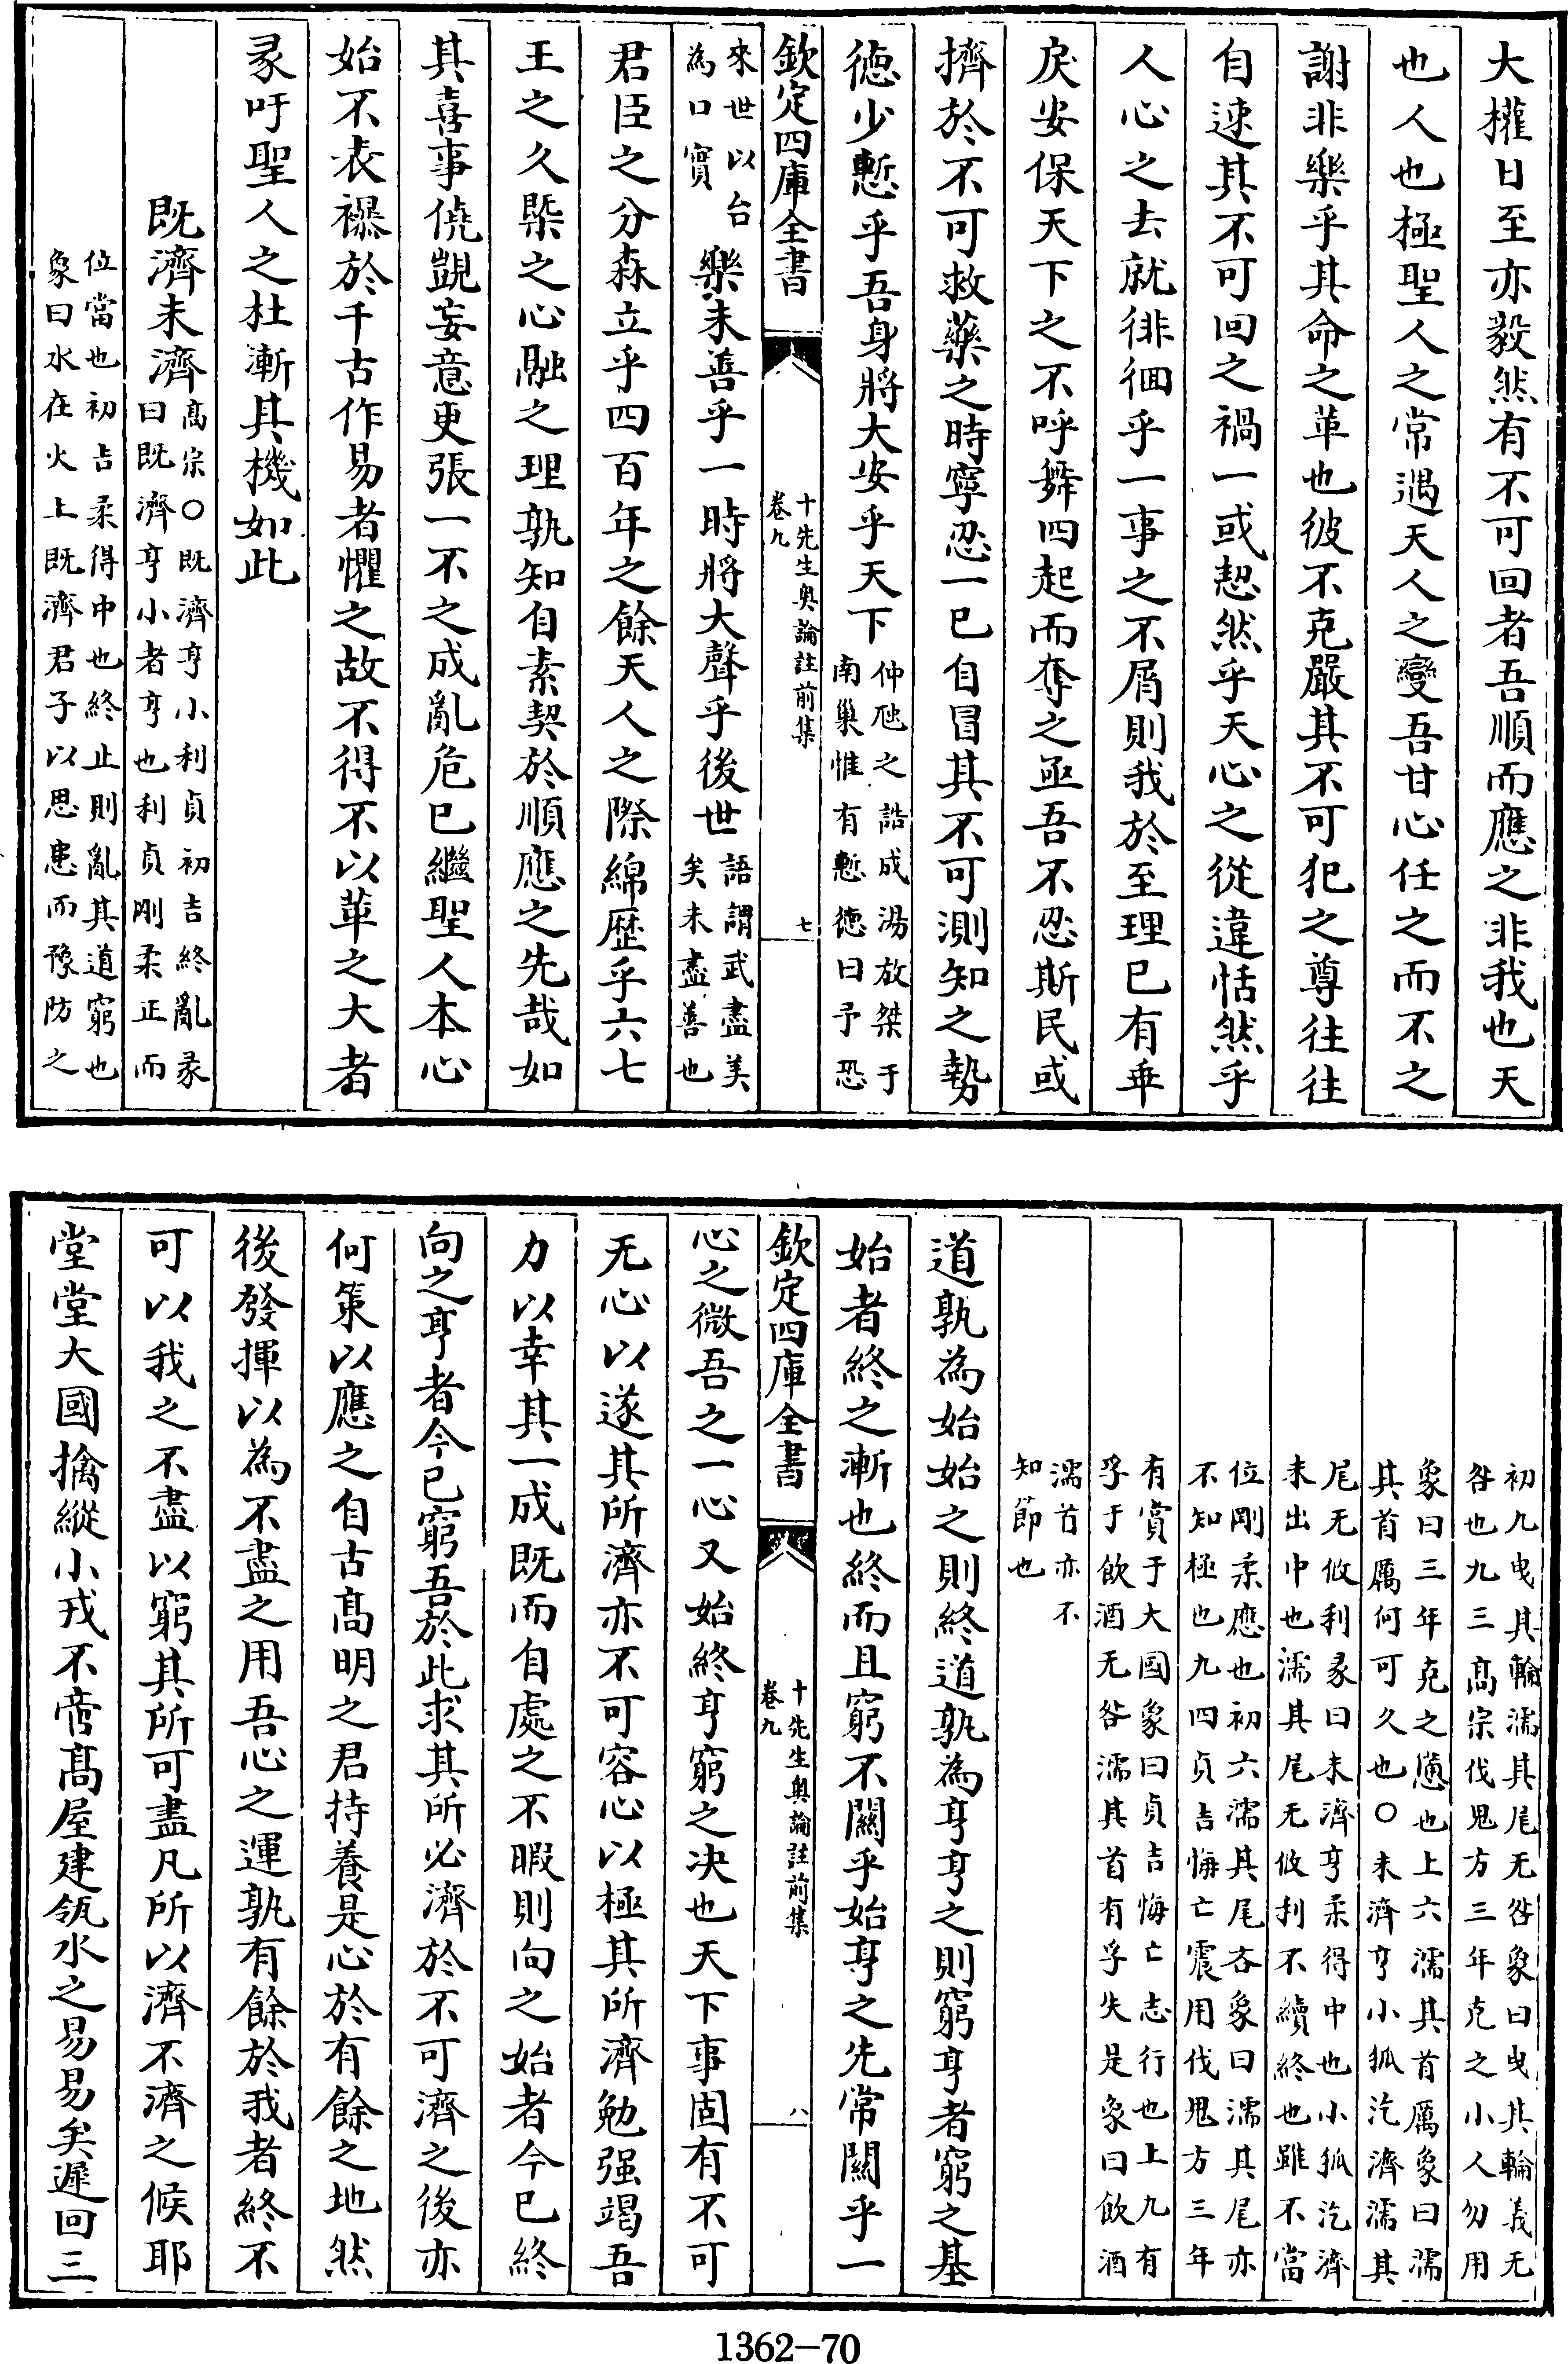 大權日至亦毅然有不可回者吾順而應之非我也天
也人也極聖人之常遇天人之變吾甘心任之而不之
謝非樂乎其命之革也彼不克嚴其不可犯之尊往往
自速其不可回之禍一或恝然乎天心之從違恬然乎
人心之去就徘徊乎一事之不屑則我於至理已有乖
戾安保天下之不呼舞四起而奪之亟吾不忍斯民或
擠於不可救藥之時寧忍一已自冒其不可測知之勢
徳少慙乎吾身將大安乎天下仲虺之誥成湯放桀于
南巢惟有慙徳曰予恐
欽定四庫全書
十先生奥論註前集
卷九
七
來世以台
為口實
樂未善乎一時將大聲乎後世語謂武盡美
矣未盡善也
君臣之分森立乎四百年之餘天人之際綿歴乎六七
王之久槩之心融之理孰知自素契於順應之先哉如
其喜事僥覬妄意更張一不之成亂危已繼聖人本心
始不表襮於千古作易者懼之故不得不以革之大者
彖吁聖人之杜漸其機如此
既濟未濟髙宗○既濟亨小利貞初吉終亂彖
曰既濟亨小者亨也利貞剛柔正而
位當也初吉柔得中也終止則亂其道窮也
象曰水在火上既濟君子以思患而豫防之
初九曳其輪濡其尾无咎象曰曳其輪義无
咎也九三髙宗伐鬼方三年克之小人勿用
象曰三年克之憊也上六濡其首厲象曰濡
其首厲何可久也○未濟亨小狐汔濟濡其
尾无攸利彖曰未濟亨柔得中也小狐汔濟
未出中也濡其尾无攸利不續終也雖不當
位剛柔應也初六濡其尾吝象曰濡其尾亦
不知極也九四貞吉悔亡震用伐鬼方三年
有賞于大國象曰貞吉悔亡志行也上九有
孚于飲酒无咎濡其首有孚失是象曰飲酒
濡首亦不
知節也
道孰為始始之則終道孰為亨亨之則窮亨者窮之基
始者終之漸也終而且窮不關乎始亨之先常關乎一
欽定四庫全書
十先生奥論註前集
卷九
八
心之微吾之一心又始終亨窮之决也天下事固有不可
无心以遂其所濟亦不可容心以極其所濟勉强竭吾
力以幸其一成既而自處之不暇則向之始者今已終
向之亨者今已窮吾於此求其所必濟於不可濟之後亦
何策以應之自古髙明之君持養是心於有餘之地然
後發揮以為不盡之用吾心之運孰有餘於我者終不
可以我之不盡以窮其所可盡凡所以濟不濟之候耶
堂堂大國擒縱小戎不啻髙屋建瓴水之易易矣遲回三
1362-70